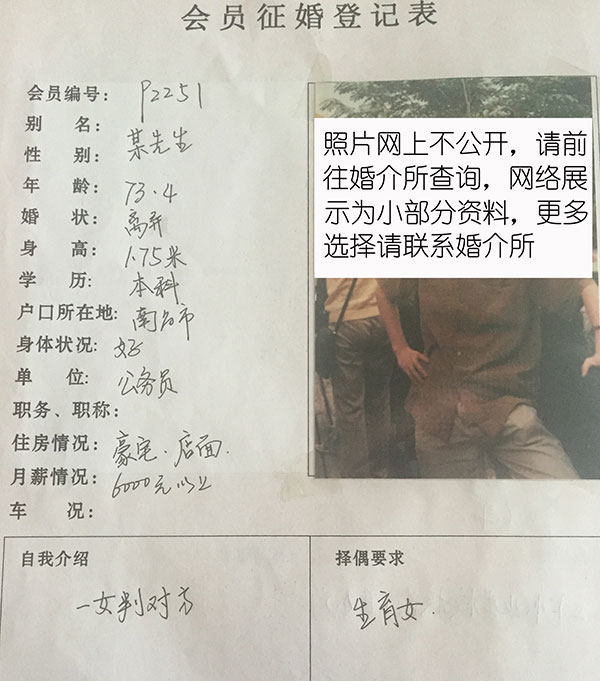 会员征婚登记表
会员编号： P2251
别 名： 某先生
性 别：
年 龄： 73.4
婚 状： 离异
身 高： 1.75米
学 历： 本科
户口所在地： 南昌市
身体状况： 好
单 位： 公务员
职务、职称：
住房情况： 豪宅.店面.
月薪情况： 6000元以上
车 况：
照片网上不公开，请前
往婚介所查询，网络展
示为小部分资料，更多
选择请联系婚介所
自我介绍
一女判对方
择偶要求
生育女.